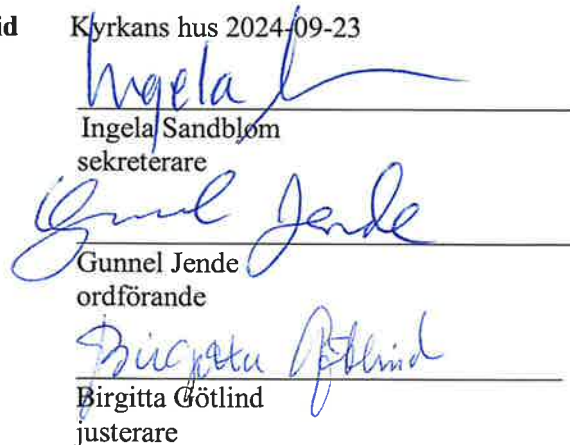 id Kyrkans hus 2024-09-23
Ingela
Ingela Sandblom
sekreterare
Gunnel Jende
Gunnel Jende
ordförande
Birgitta Götlind
Birgitta Götlind
justerare